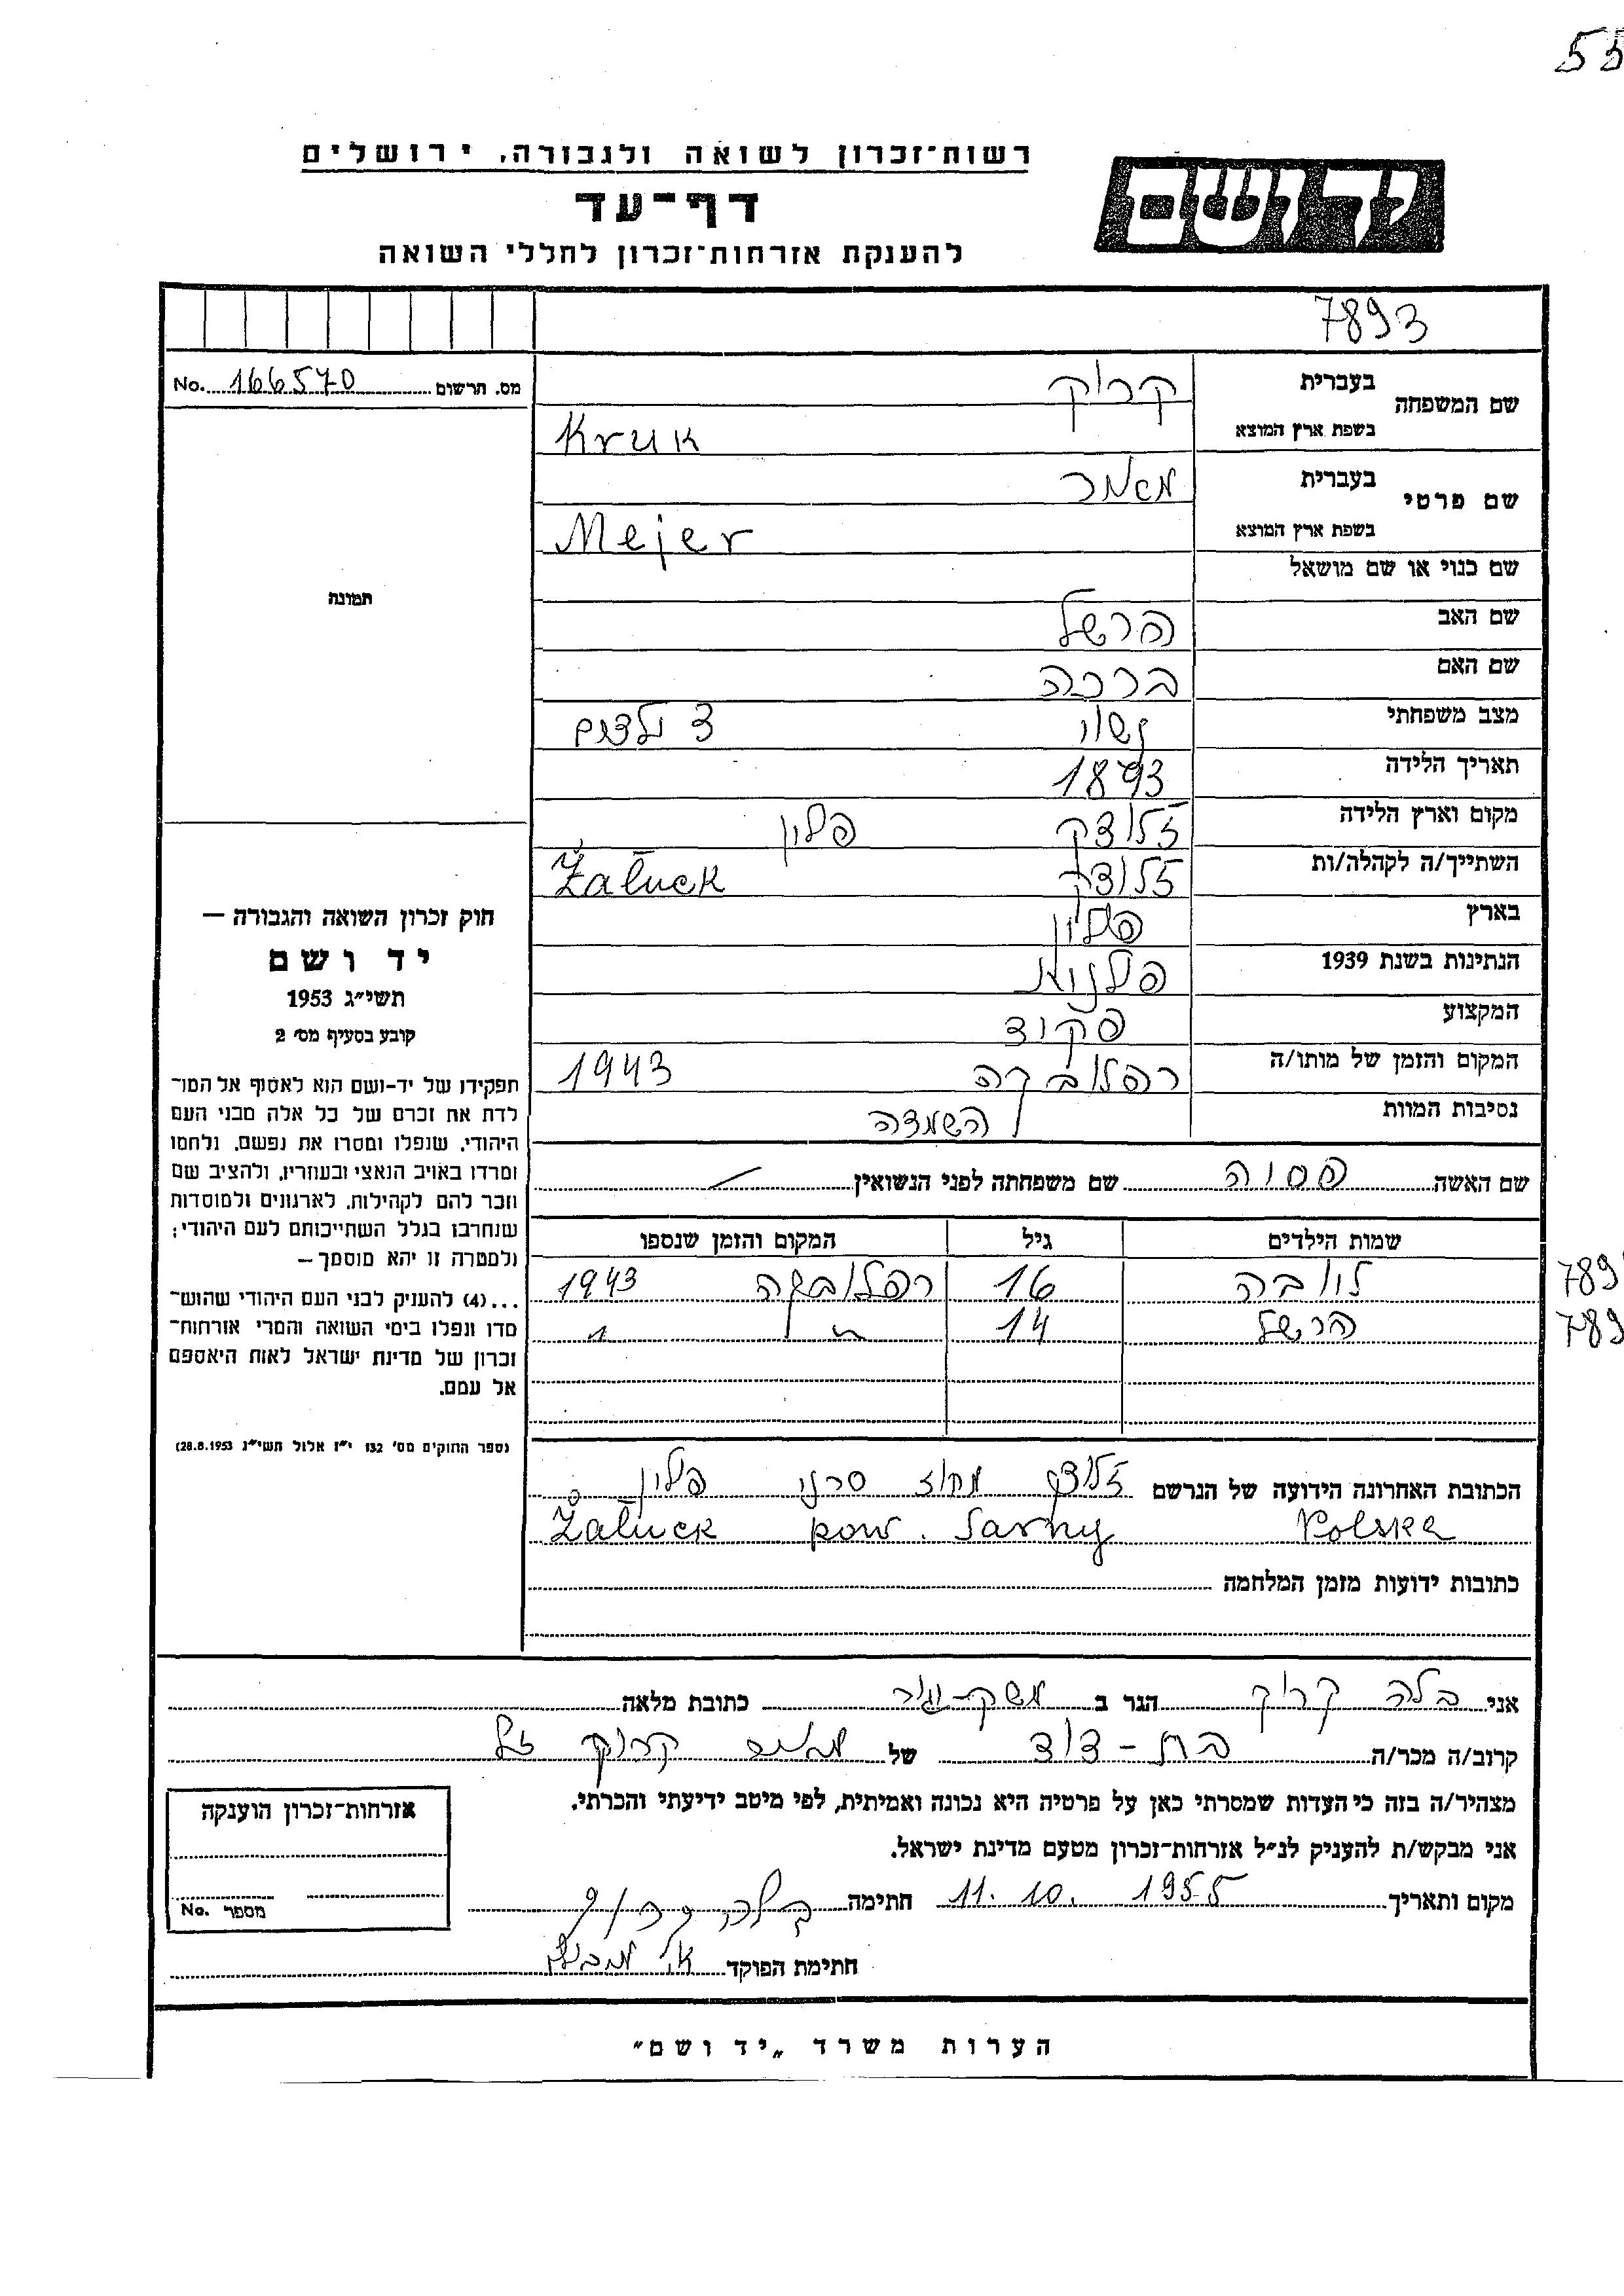 55
רשות־זכרון לשואה ולגבורה, ירושלים
יד ושם
דף־עד
להענקת אזרחות־זכרון לחללי השואה
7893
מס. תרשום No. 166570
שם המשפחה בעברית קרוק
בשפת ארץ המוצא Kruk
שם פרטי בעברית מאיר
בשפת ארץ המוצא Mejer
שם כנוי או שם מושאל
שם האב הרשל
שם האם ברכה
מצב משפחתי נשוי 3 ילדים
תאריך הלידה 1893
מקום וארץ הלידה זלוצק פולין
השתייך/ה לקהלה/ות זלוצק Żałuck
בארץ פולין
הנתינות בשנת 1939 פולנית
המקצוע פקיד
המקום והזמן של מותו/ה רפלובקה 1943
נסיבות המוות השמדה
שם האשה פסיה שם משפחתה לפני הנשואין —
שמות הילדים גיל המקום והזמן שנספו
ליובה 16 רפלובקה 1943
789
הרשל 14 " "
789
הכתובת האחרונה הידועה של הנרשם זלוצק מחוז סרני פולין
Żałuck pow. Sarny Polska
כתובות ידועות מזמן המלחמה
תמונה
חוק זכרון השואה והגבורה —
יד ושם
תשי״ג 1953
קובע בסעיף מס׳ 2
תפקידו של יד-ושם הוא לאסוף אל המו־
לדת את זכרם של כל אלה מבני העם
היהודי, שנפלו ומסרו את נפשם, נלחמו
ומרדו באויב הנאצי ובעוזריו, ולהציב שם
וזכר להם לקהילות, לארגונים ולמוסדות
שנחרבו בגלל השתייכותם לעם היהודי;
ולמטרה זו יהא מוסמך —
...(4) להעניק לבני העם היהודי שהוש־
מדו ונפלו בימי השואה והמרי אזרחות־
זכרון של מדינת ישראל לאות היאספם
אל עמם.
(ספר החוקים מס׳ 132 י״ז אלול תשי״ג 28.8.1953)
אני בלה קרוק הגר ב כתובת מלאה
קרוב/ה מכר/ה בת-דוד של מאיר קרוק ז״ל
מצהיר/ה בזה כי העדות שמסרתי כאן על פרטיה היא נכונה ואמיתית, לפי מיטב ידיעתי והכרתי.
אני מבקש/ת להעניק לנ״ל אזרחות־זכרון מטעם מדינת ישראל.
מקום ותאריך 11. 10. 1955 חתימה בלה קרוק
חתימת הפוקד
אזרחות־זכרון הוענקה
מספר No.
הערות משרד „יד ושם״